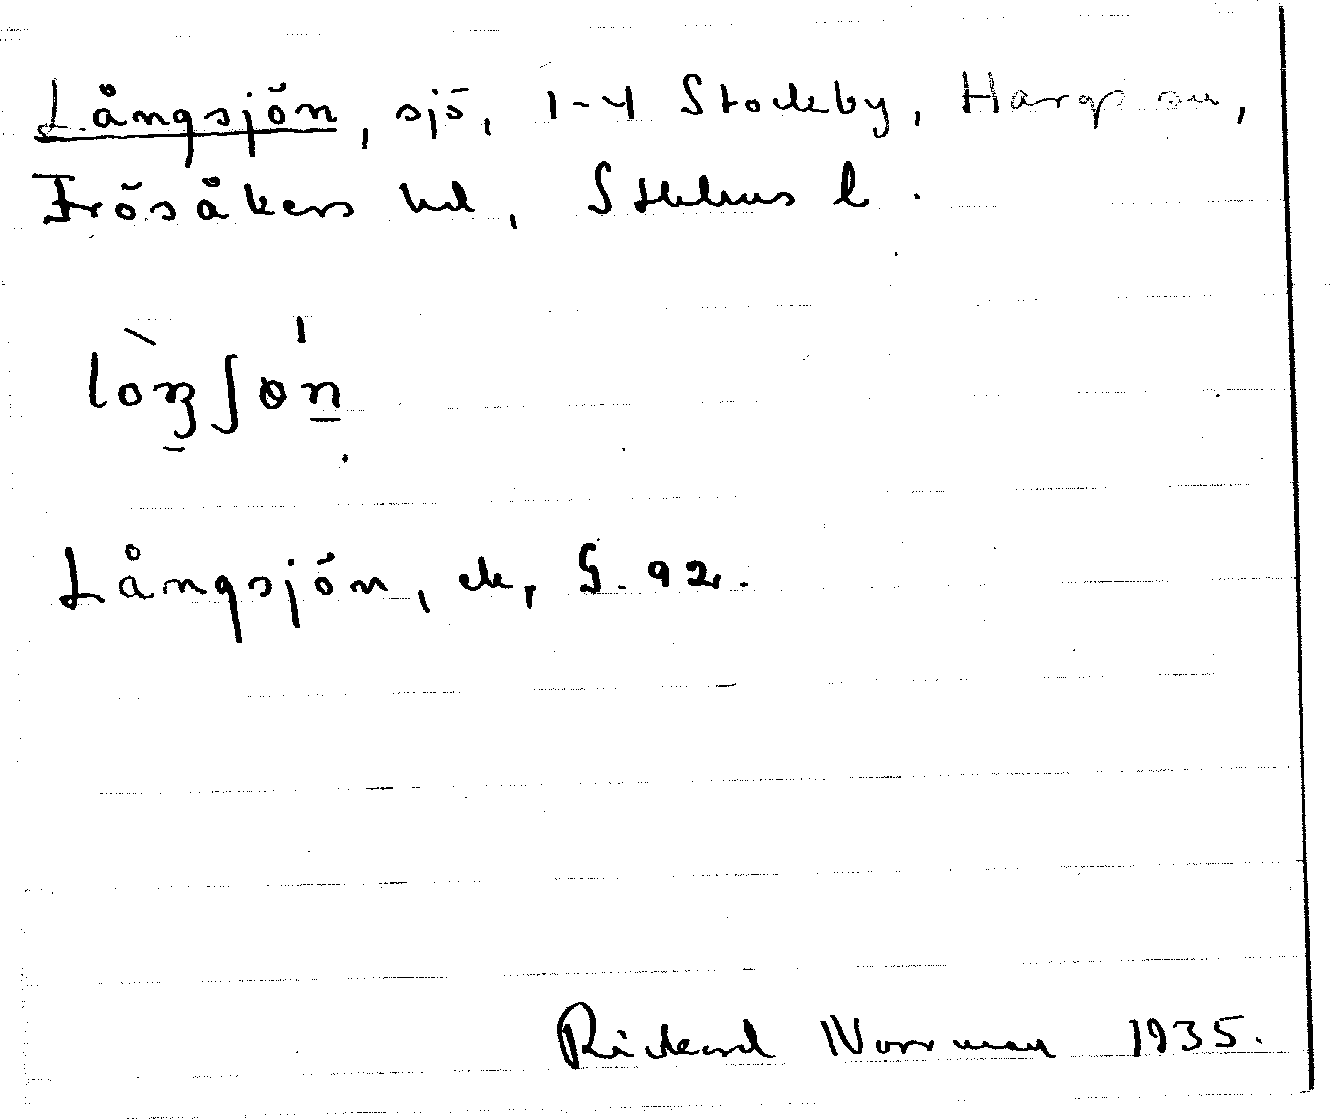 Långsjön, sjö, 1-4 Stockby, Hargs sn,
Frösåkers hd, Sthlms l.
lòŋʃøn
Långsjön, ek, G. 92.
Rickard Norrman 1935.